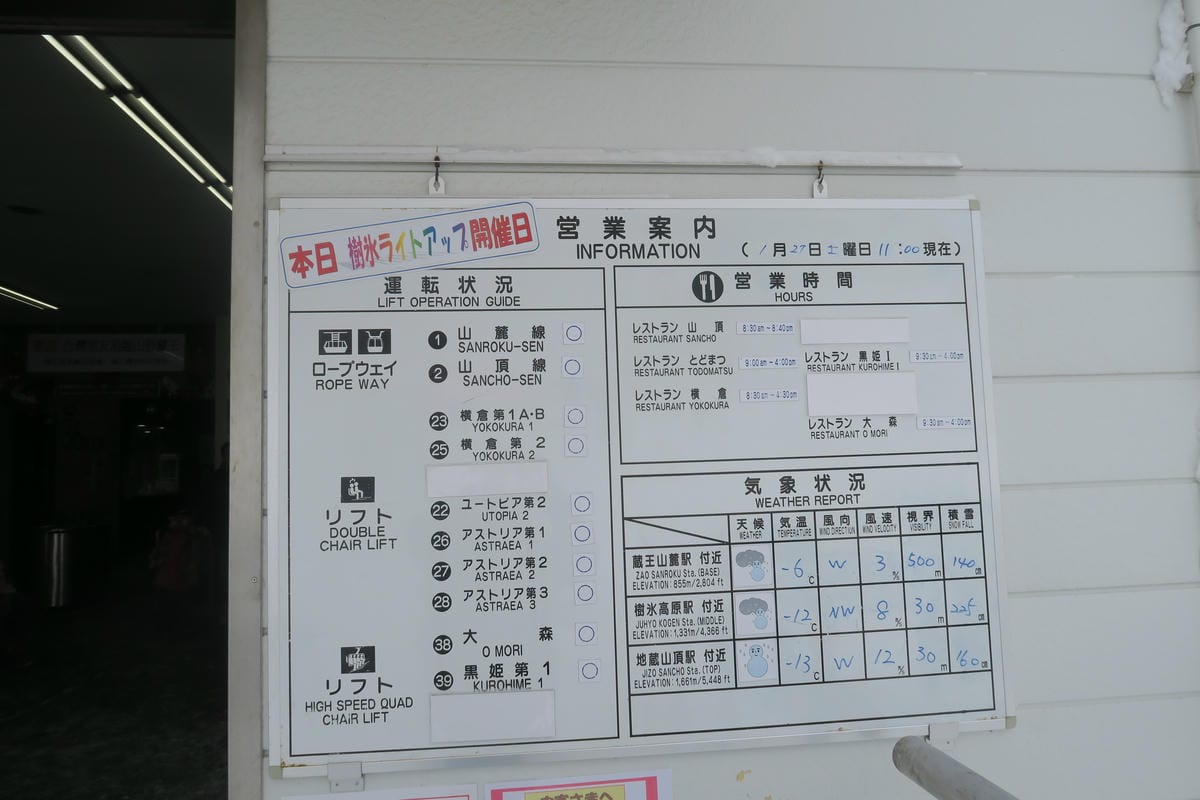 本日 樹氷ライトアップ開催日
営業案内
INFORMATION
(1月27日土曜日11:00現在)
運転状況
LIFT OPERATION GUIDE
ロープウェイ
ROPE WAY
1 山麓線 ○
SANROKU-SEN
2 山頂線 ○
SANCHO-SEN
23 横倉第1A・B ○
YOKOKURA 1
25 横倉第2 ○
YOKOKURA 2
リフト
DOUBLE
CHAIR LIFT
22 ユートピア第2 ○
UTOPIA 2
26 アストリア第1 ○
ASTRAEA 1
27 アストリア第2 ○
ASTRAEA 2
28 アストリア第3 ○
ASTRAEA 3
38 大森 ○
O MORI
リフト
HIGH SPEED QUAD
CHAIR LIFT
39 黒姫第1 ○
KUROHIME 1
営業時間
HOURS
レストラン 山頂 8:30am~8:40pm
RESTAURANT SANCHO
レストラン とどまつ 9:00am~4:00pm
RESTAURANT TODOMATSU
レストラン 横倉 8:30am~4:30pm
RESTAURANT YOKOKURA
レストラン 黒姫Ⅰ 9:30am~4:00pm
RESTAURANT KUROHIME Ⅰ
レストラン 大森 9:30am~4:00pm
RESTAURANT O MORI
気象状況
WEATHER REPORT
天候 気温 風向 風速 視界 積雪
WEATHER TEMPERATURE WIND DIRECTION WIND VELOCITY VISIBILITY SNOW FALL
蔵王山麓駅 付近 -6C W 3% 500m 140cm
ZAO SANROKU Sta. (BASE)
ELEVATION: 855m/2,804 ft
樹氷高原駅 付近 -12C NW 8% 30m 225cm
JUHYO KOGEN Sta. (MIDDLE)
ELEVATION: 1,331m/4,366 ft
地蔵山頂駅 付近 -13C W 12% 30m 160cm
JIZO SANCHO Sta. (TOP)
ELEVATION: 1,661m/5,448 ft